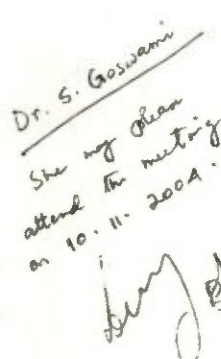 Dr. S. Goswami
She may please
attend the meeting
on 10.11.2004.